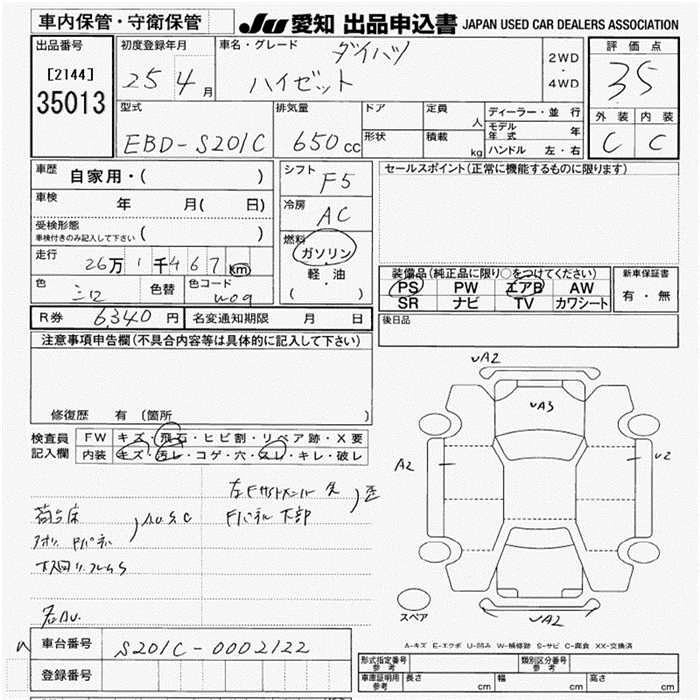 車内保管・守衛保管
JU 愛知 出品申込書 JAPAN USED CAR DEALERS ASSOCIATION
出品番号
[2144]
35013
初度登録年月
25 4 月
車名・グレード
ダイハツ
ハイゼット
2WD
・
4WD
評価点
35
外装 内装
C C
型式
EBD-S201C
排気量
650 cc
ドア
形状
定員 人
積載 kg
ディーラー・並行
モデル年式 年
ハンドル 左・右
車歴 自家用・( )
車検 年 月( 日)
受検形態
車検付きのみ記入して下さい ( )
走行
26万 1千467 km
色 シロ 色替 色コード W09
シフト F5
冷房 AC
燃料
ガソリン
・
軽油
( )
セールスポイント(正常に機能するものに限ります)
装備品(純正品に限り○をつけてください)
PS PW エアB AW
SR ナビ TV カワシート
新車保証書
有・無
R券 6,340 円 名変通知期限 月 日
後日品
注意事項申告欄(不具合内容等は具体的に記入して下さい)
修復歴 有 (箇所 )
検査員
記入欄
FW キズ・飛石・ヒビ割・リペア跡・X要
内装 キズ・汚レ・コゲ・穴・スレ・キレ・破レ
荷台床
アオリ Fパネル
A.U.S.C
Fパネル下部
歪
A2
A3
A2
A2
スペア
A-キズ E-エクボ U-凹み W-補修跡 S-サビ C-腐食 XX-交換済
車台番号 S201C-0002122
登録番号
形式指定番号
参考
類別区分番号
参考
車庫証明用
参考
長さ cm 幅 cm 高さ cm